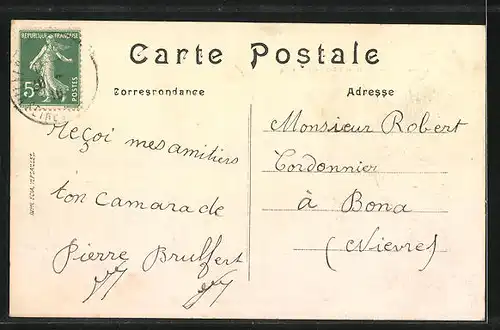 REPUBLIQUE FRANÇAISE
5
Carte Postale
Correspondance
Adresse
Reçoi mes amitiers
ton camarade
Pierre Brulfert
Monsieur Robert
Cordonnier
à Bona
(Nievre)